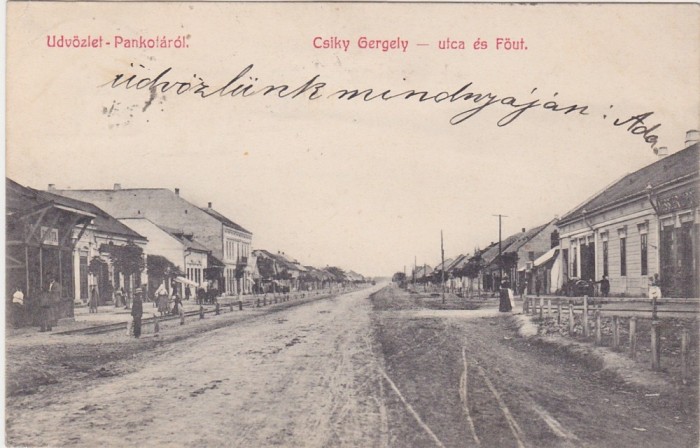 Udvözlet-Pankotáról.
Csiky Gergely — utca és Főut.
üdvözlünk mindnyáján: Ada